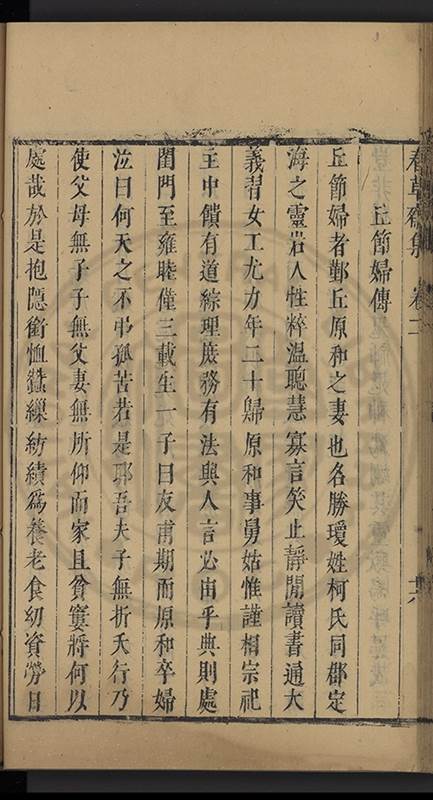 春草齋集 卷三 十八
丘節婦傳
丘節婦者鄞丘原和之妻也名勝瓊姓柯氏同郡定
海之靈岩人性粹溫聰慧寡言笑止靜閒讀書通大
義習女工尤力年二十歸原和事舅姑惟謹相宗祀
主中饋有道綜理庶務有法與人言必由乎典則處
閨門至雍睦僅三載生一子曰友甫期而原和卒婦
泣曰何天之不弔孤苦若是耶吾夫子無折夭行乃
使父母無子子無父妻無所仰而家且貧窶將何以
處哉於是抱隱銜恤蠶繅紡績爲養老食幼資勞日